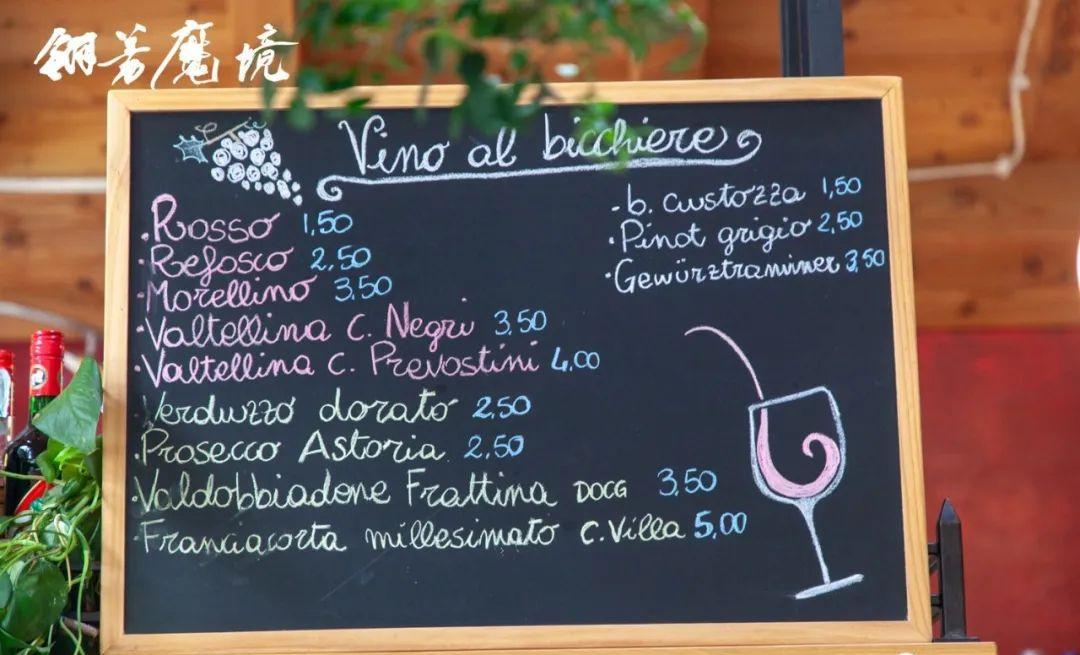 铜芳魔境
Vino al bicchiere
·Rosso 1,50
·Refosco 2,50
·Morellino 3,50
·Valtellina C. Negri 3,50
·Valtellina C. Prevostini 4,00
·Verduzzo dorato 2,50
·Prosecco Astoria 2,50
·Valdobbiadene Frattina DOCG 3,50
·Franciacorta millesimato C. Villa 5,00
-b. custozza 1,50
·Pinot grigio 2,50
·Gewürztraminer 3,50